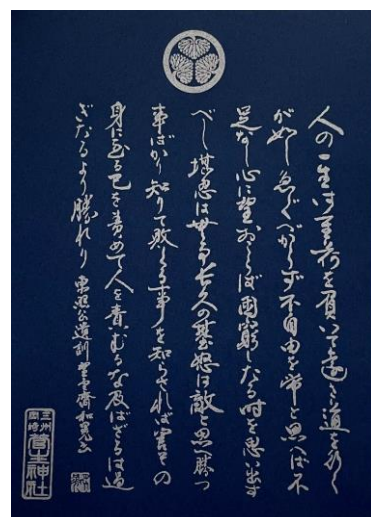 人の一生は重荷を負いて遠き道を行く
が如し急ぐべからず不自由を常と思へば不
足なし心に望おこらば困窮したる時を思い出す
べし堪忍は無事長久の基怒は敵と思へ勝つ
事ばかり知りて敗くる事を知らざれば害その
身に至る己を責めて人を責むるな及ばざるは過
ぎたるより勝れり 東照公遺訓
三州
岡崎
菅生神社